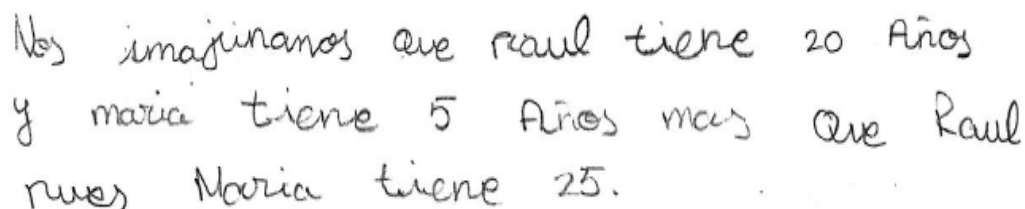 Nos imajinanos que raul tiene 20 Años
y maria tiene 5 Años mas que Raul
pues Maria tiene 25.